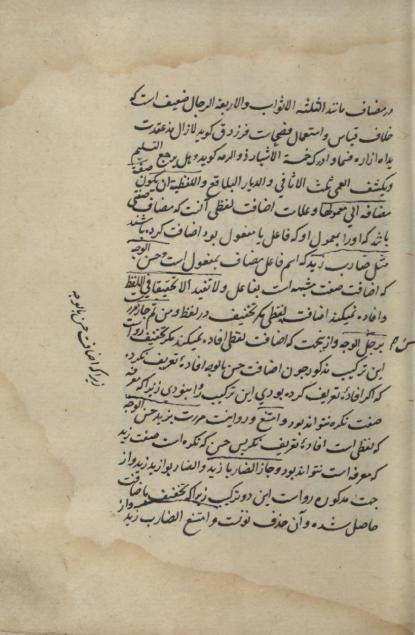 در مضاف مانند الثلثة الاثواب والاربعة الرجال ضعیف است که
خلاف قیاس و استعمال فصحاست فرزدق کوید لازال مذ عقدت
یداه ازاره فسما و ادرک خمسة الاشبار ذو الرمه کوید وهل یرجع التسلیم
او یکشف العمی ثلث الاثافی والدیار البلاقع واللفظیة ان یکون صفة
مضافة الی معمولها وعلامت اضافت لفظی آنست که مضاف صفتی
باشد که اورا بمعمول او که فاعل یا مفعول بود اضافت کرده باشند
مثل ضارب زید که اسم فاعل مضاف بمفعول است وحسن الوجه
که اضافت صفت مشبهه است بفاعل ولا تفید الا تخفیفا فی اللفظ
وافاده نمیکند اضافت لفظی مکر تخفیف در لفظ ومن ثم جاز مررت
برجل حسن الوجه وازینجهت که اضافت لفظی افاده نمیکند مکر تخفیف رواست
این ترکیب مذکور چون اضافت حسن بالوجه افادهٔ تعریف نکرده
که اکر افادهٔ تعریف کرده بودی این ترکیب روا نبودی زیرا که معرفه
صفت نکره نتواند بود وامتنع و روا نیست مررت بزید حسن الوجه
که لفظی است افادهٔ تعریف نکرد پس حسن که نکره است صفت زید
که معرفه است نتواند بود وجاز الضاربا زید والضاربوا زید و از
جهت مذکور رواست این دو ترکیب زیرا که تخفیف باضافت
حاصل شده وآن حذف نونست وامتنع الضارب زید
زیرا که اضافت حسن بالوجه